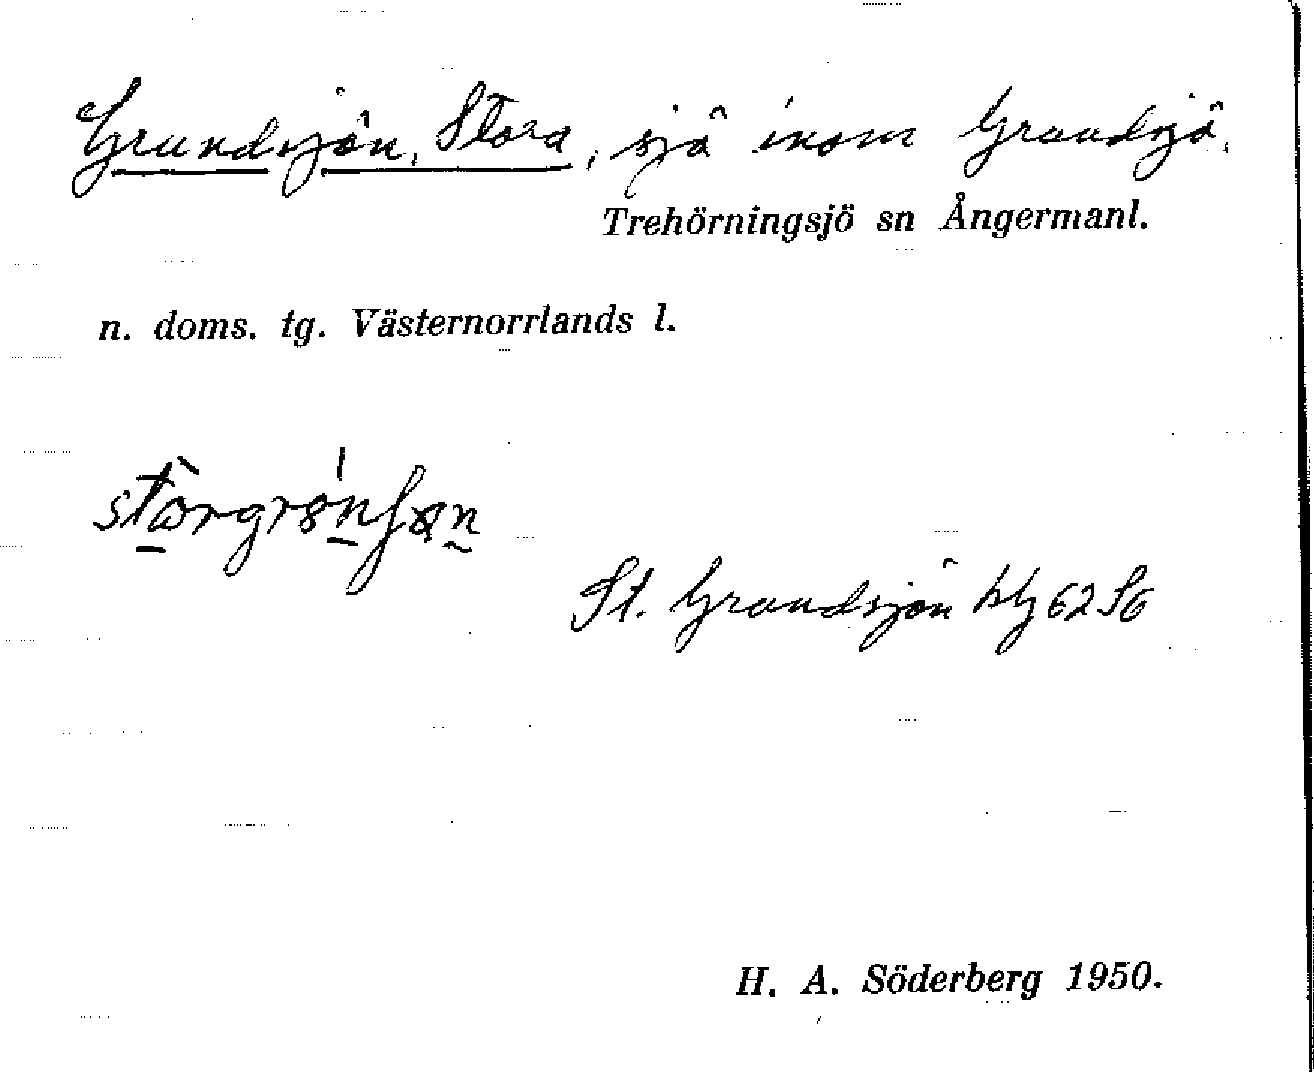 Grundsjön, Stora, sjö inom Grundsjö.
Trehörningsjö sn Ångermanl.
n. doms. tg. Västernorrlands l.
St. Grundsjön kbl 62 SO
H. A. Söderberg 1950.